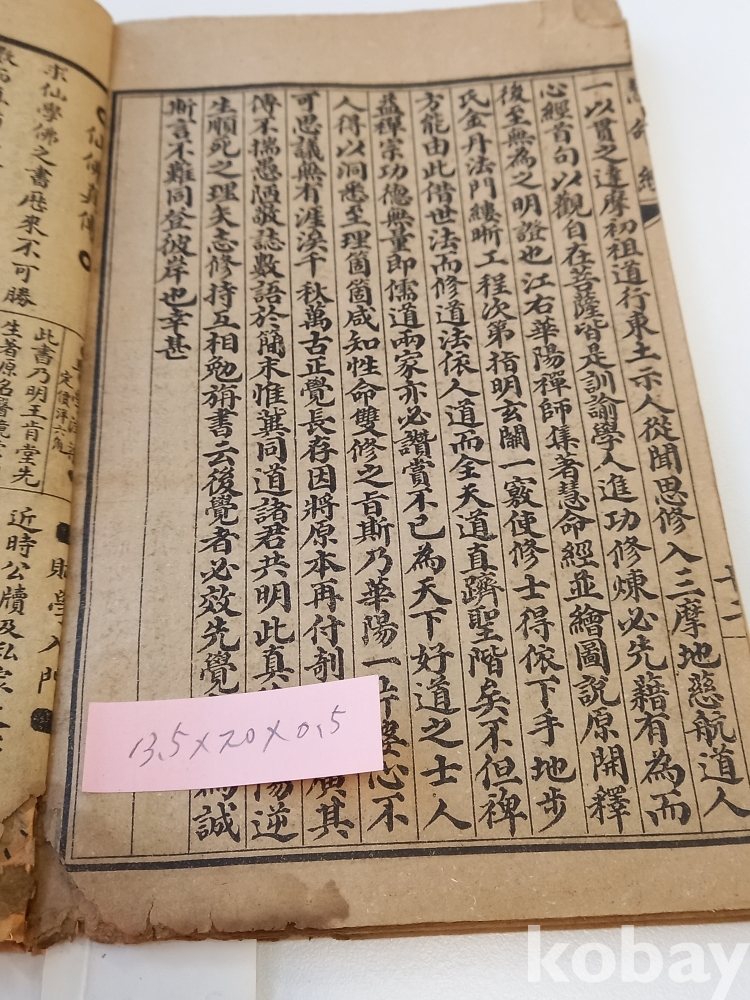 慧命經
一以貫之達摩初祖道行東土示人從聞思修入三摩地慈航道人
心經首句以觀自在菩薩皆是訓諭學人進功修煉必先藉有為而
後至無為之明證也江右華陽禪師集著慧命經並繪圖說原開釋
氏金丹法門縷晰工程次第指明玄關一竅使修士得依下手地步
方能由此借世法而修道法依人道而全天道直躋聖階矣不但裨
益禪宗功德無量即儒道兩家亦必讚賞不已為天下好道之士人
人得以洞悉至理箇箇咸知性命雙修之旨斯乃華陽一片婆心不
可思議無有涯涘千秋萬古正覺長存因將原本再付剞廣其
傳不揣愚陋敬誌數語於簡末惟冀同道諸君共明此真陽逆
生順死之理矢志修持互相勉旃書云後覺者必效先覺為誠
斯言不難同登彼岸也幸甚
仙佛真傳
求仙學佛之書歷來不可勝
定價洋六角
此書乃明王肯堂先
生著原名醫鏡
學入門
近時公牘及私家
13.5×20×0.5
kobay